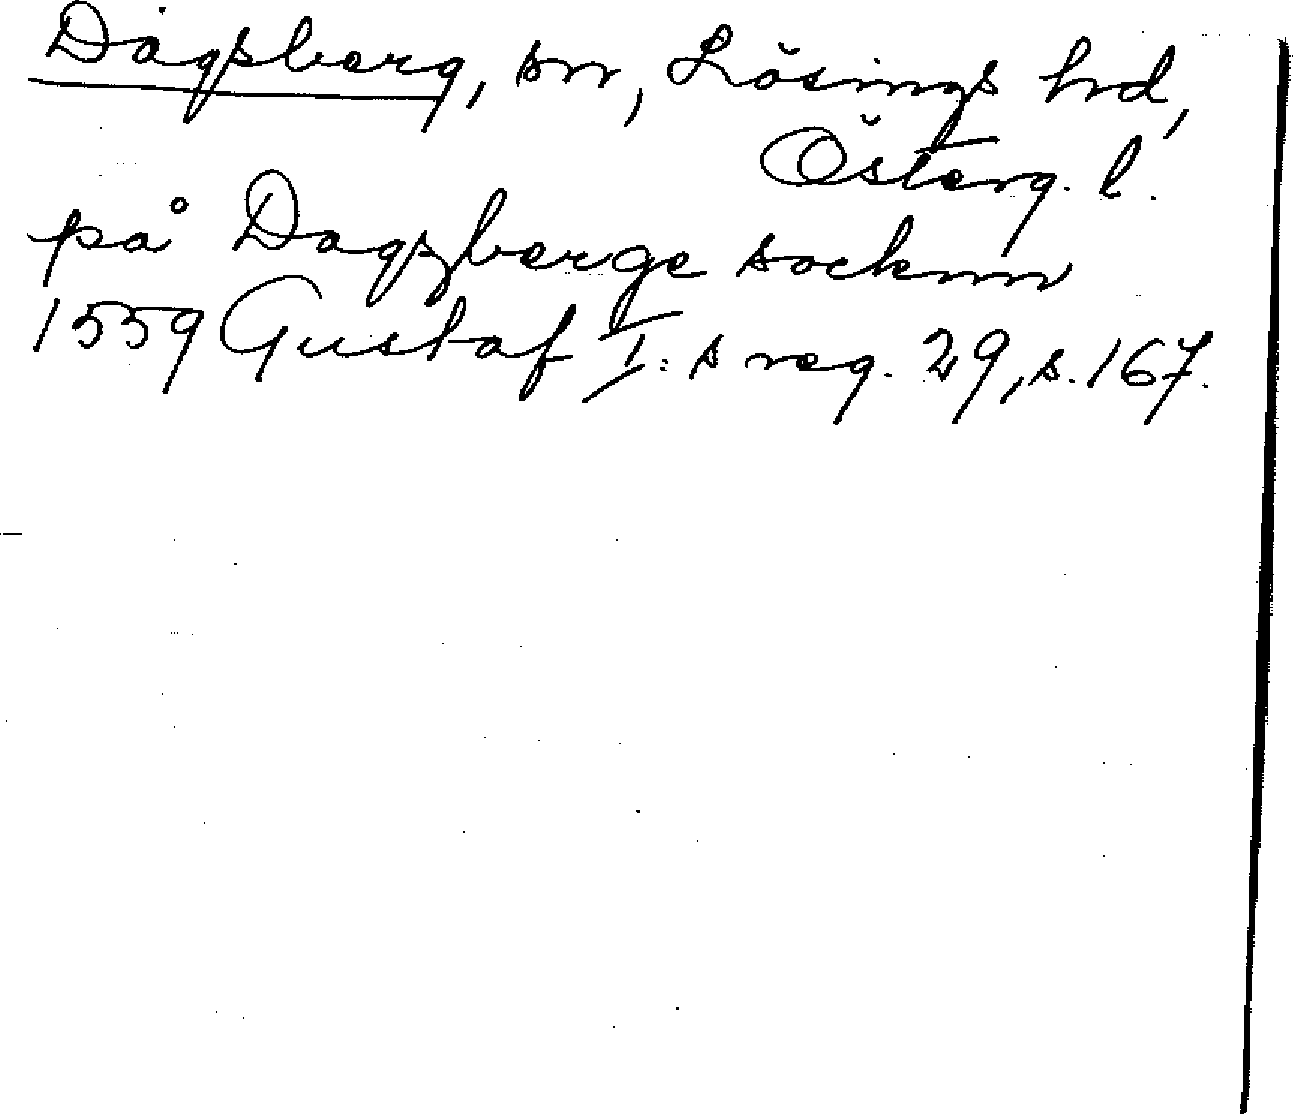 Dagsberg, sn, Lösings hrd,
Österg. l.
på Dagzberge socknn
1559 Gustaf I:s reg. 29, s. 167.